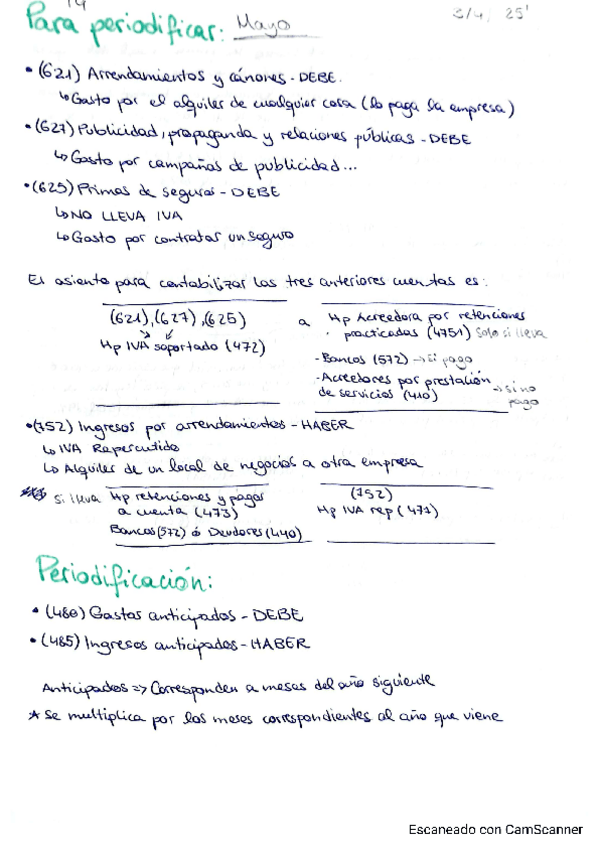 14
Para periodificar: Mayo
3/4, 25'
• (621) Arrendamientos y cánones - DEBE.
↳ Gasto por el alquiler de cualquier cosa (lo paga la empresa)
• (627) Publicidad, propaganda y relaciones públicas - DEBE
↳ Gasto por campañas de publicidad...
• (625) Primas de seguros - DEBE
↳ NO LLEVA IVA
↳ Gasto por contratar un seguro
El asiento para contabilizar las tres anteriores cuentas es:
(621), (627), (625) a Hp Acreedora por retenciones
practicadas (4751) solo si lleva
Hp IVA soportado (472)
- Bancos (572) → si pago
- Acreedores por prestación → si no
de servicios (410) pago
• (752) Ingresos por arrendamientos - HABER
↳ IVA Repercutido
↳ Alquiler de un local de negocios a otra empresa
si lleva Hp retenciones y pagos (752)
a cuenta (473) Hp IVA rep (477)
Bancos (572) ó Deudores (440)
Periodificación:
• (480) Gastos anticipados - DEBE
• (485) Ingresos anticipados - HABER
Anticipados => Corresponden a meses del año siguiente
* Se multiplica por los meses correspondientes al año que viene
Escaneado con CamScanner